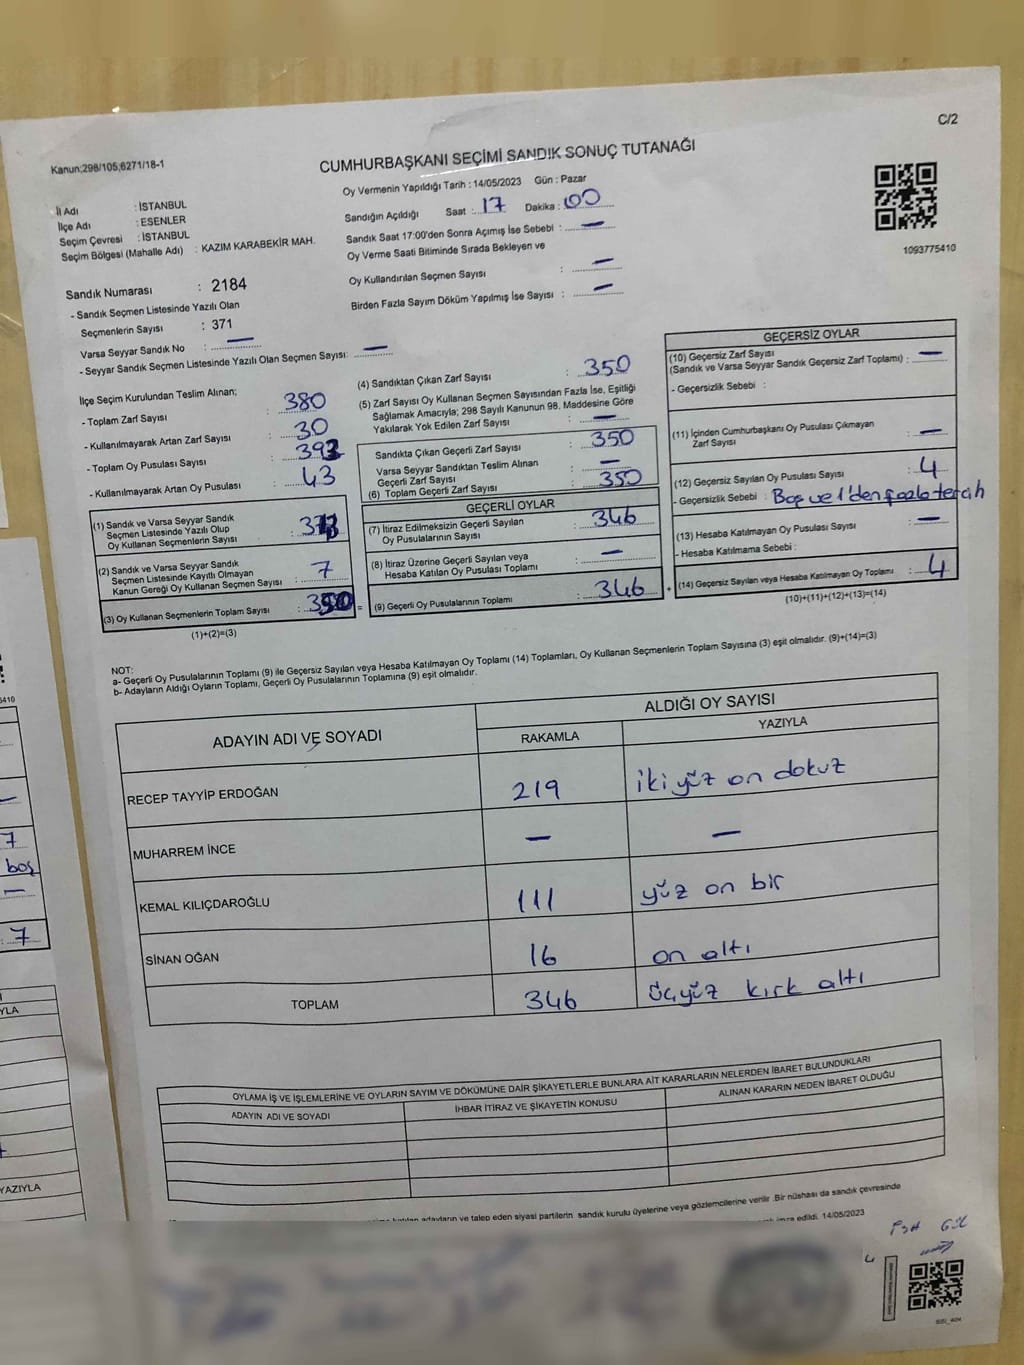 C/2
Kanun;298/105;6271/18-1
CUMHURBAŞKANI SEÇİMİ SANDIK SONUÇ TUTANAĞI
Oy Vermenin Yapıldığı Tarih : 14/05/2023 Gün : Pazar
İl Adı : İSTANBUL
İlçe Adı : ESENLER
Seçim Çevresi : İSTANBUL
Seçim Bölgesi (Mahalle Adı) : KAZIM KARABEKİR MAH.
Sandık Numarası : 2184
- Sandık Seçmen Listesinde Yazılı Olan
Seçmenlerin Sayısı : 371
Varsa Seyyar Sandık No : —
- Seyyar Sandık Seçmen Listesinde Yazılı Olan Seçmen Sayısı: —
Sandığın Açıldığı Saat : 17 Dakika : 00
Sandık Saat 17:00'den Sonra Açımış İse Sebebi : —
Oy Verme Saati Bitiminde Sırada Bekleyen ve
Oy Kullandırılan Seçmen Sayısı : —
Birden Fazla Sayım Döküm Yapılmış İse Sayısı : —
1093775410
İlçe Seçim Kurulundan Teslim Alınan;
- Toplam Zarf Sayısı : 380
- Kullanılmayarak Artan Zarf Sayısı : 30
- Toplam Oy Pusulası Sayısı : 393
- Kullanılmayarak Artan Oy Pusulası : 43
(1) Sandık ve Varsa Seyyar Sandık
Seçmen Listesinde Yazılı Olup
Oy Kullanan Seçmenlerin Sayısı :
(2) Sandık ve Varsa Seyyar Sandık
Seçmen Listesinde Kayıtlı Olmayan
Kanun Gereği Oy Kullanan Seçmen Sayısı : 7
(3) Oy Kullanan Seçmenlerin Toplam Sayısı : 350 =
(1)+(2)=(3)
(4) Sandıktan Çıkan Zarf Sayısı : 350
(5) Zarf Sayısı Oy Kullanan Seçmen Sayısından Fazla İse, Eşitliği
Sağlamak Amacıyla; 298 Sayılı Kanunun 98. Maddesine Göre
Yakılarak Yok Edilen Zarf Sayısı : —
Sandıkta Çıkan Geçerli Zarf Sayısı : 350
Varsa Seyyar Sandıktan Teslim Alınan
Geçerli Zarf Sayısı : —
(6) Toplam Geçerli Zarf Sayısı : 350
GEÇERLİ OYLAR
(7) İtiraz Edilmeksizin Geçerli Sayılan
Oy Pusulalarının Sayısı : 346
(8) İtiraz Üzerine Geçerli Sayılan veya
Hesaba Katılan Oy Pusulası Toplamı : —
(9) Geçerli Oy Pusulalarının Toplamı : 346 +
GEÇERSİZ OYLAR
(10) Geçersiz Zarf Sayısı
(Sandık ve Varsa Seyyar Sandık Geçersiz Zarf Toplamı) : —
- Geçersizlik Sebebi :
(11) İçinden Cumhurbaşkanı Oy Pusulası Çıkmayan
Zarf Sayısı : —
(12) Geçersiz Sayılan Oy Pusulası Sayısı : 4
- Geçersizlik Sebebi : Boş ve 1'den fazla tercih
(13) Hesaba Katılmayan Oy Pusulası Sayısı : —
- Hesaba Katılmama Sebebi :
(14) Geçersiz Sayılan veya Hesaba Katılmayan Oy Toplamı : 4
(10)+(11)+(12)+(13)=(14)
NOT:
a- Geçerli Oy Pusulalarının Toplamı (9) ile Geçersiz Sayılan veya Hesaba Katılmayan Oy Toplamı (14) Toplamları, Oy Kullanan Seçmenlerin Toplam Sayısına (3) eşit olmalıdır. (9)+(14)=(3)
b- Adayların Aldığı Oyların Toplamı, Geçerli Oy Pusulalarının Toplamına (9) eşit olmalıdır.
ADAYIN ADI VE SOYADI ALDIĞI OY SAYISI
RAKAMLA YAZIYLA
RECEP TAYYİP ERDOĞAN 219 ikiyüz on dokuz
MUHARREM İNCE — —
KEMAL KILIÇDAROĞLU 111 yüz on bir
SİNAN OĞAN 16 on altı
TOPLAM 346 üçyüz kırk altı
OYLAMA İŞ VE İŞLEMLERİNE VE OYLARIN SAYIM VE DÖKÜMÜNE DAİR ŞİKAYETLERLE BUNLARA AİT KARARLARIN NELERDEN İBARET BULUNDUKLARI
ADAYIN ADI VE SOYADI İHBAR İTİRAZ VE ŞİKAYETİN KONUSU ALINAN KARARIN NEDEN İBARET OLDUĞU
adayların ve talep eden siyasi partilerin sandık kurulu üyelerine veya gözlemcilerine verilir. Bir nüshası da sandık çevresinde
imza edildi. 14/05/2023
5410
7
boş
7
YLA
YAZIYLA